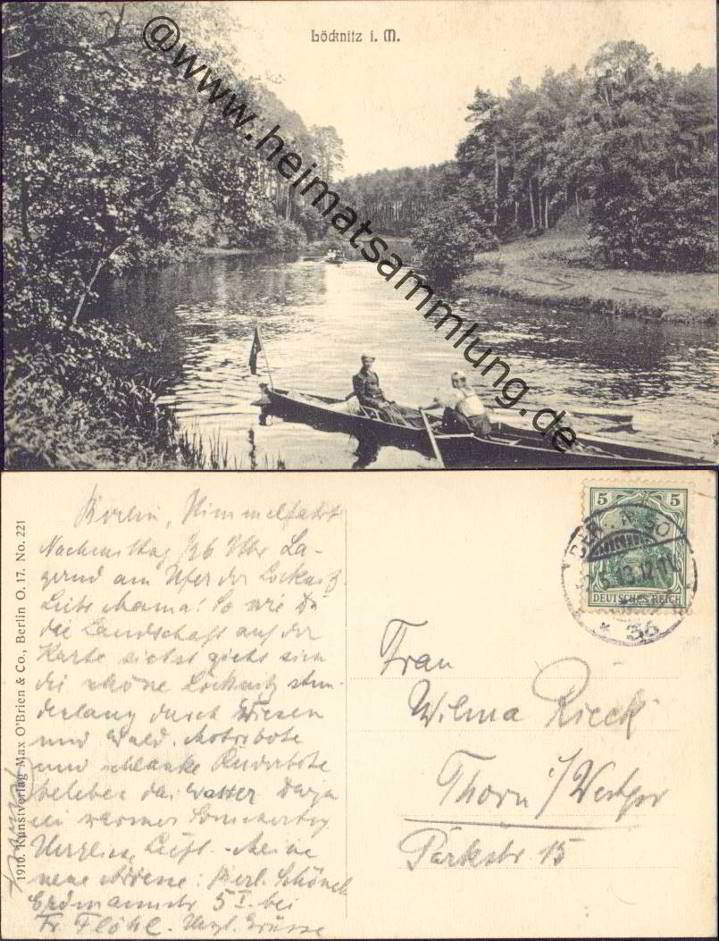 Löcknitz i. M.
@www.heimatsammlung.de
1910. Kunstverlag Max O'Brien & Co., Berlin O. 17. No. 221
Berlin, Himmelfahrt
Nachmittag 1/26 Uhr La-
gernd am Ufer der Löcknitz.
Liebe Mama! So wie Du
die Landschaft auf der
Karte siehst zieht sich
die schöne Löcknitz stun-
denlang durch Wiesen
und Wald. Motorbote
und schlanke Ruderbote
beleben das Wasser. Dazu
ein warmer
Meine
neue Adresse: Berl. Schöneb
Erdmannstr 5 I. bei
Fr. Flöhl. Herzl. Grüsse
5 5
DEUTSCHES REICH
BERLIN SO
* 36
Frau
Wilma Rieck
Thorn i/Westpr
Parkstr 15